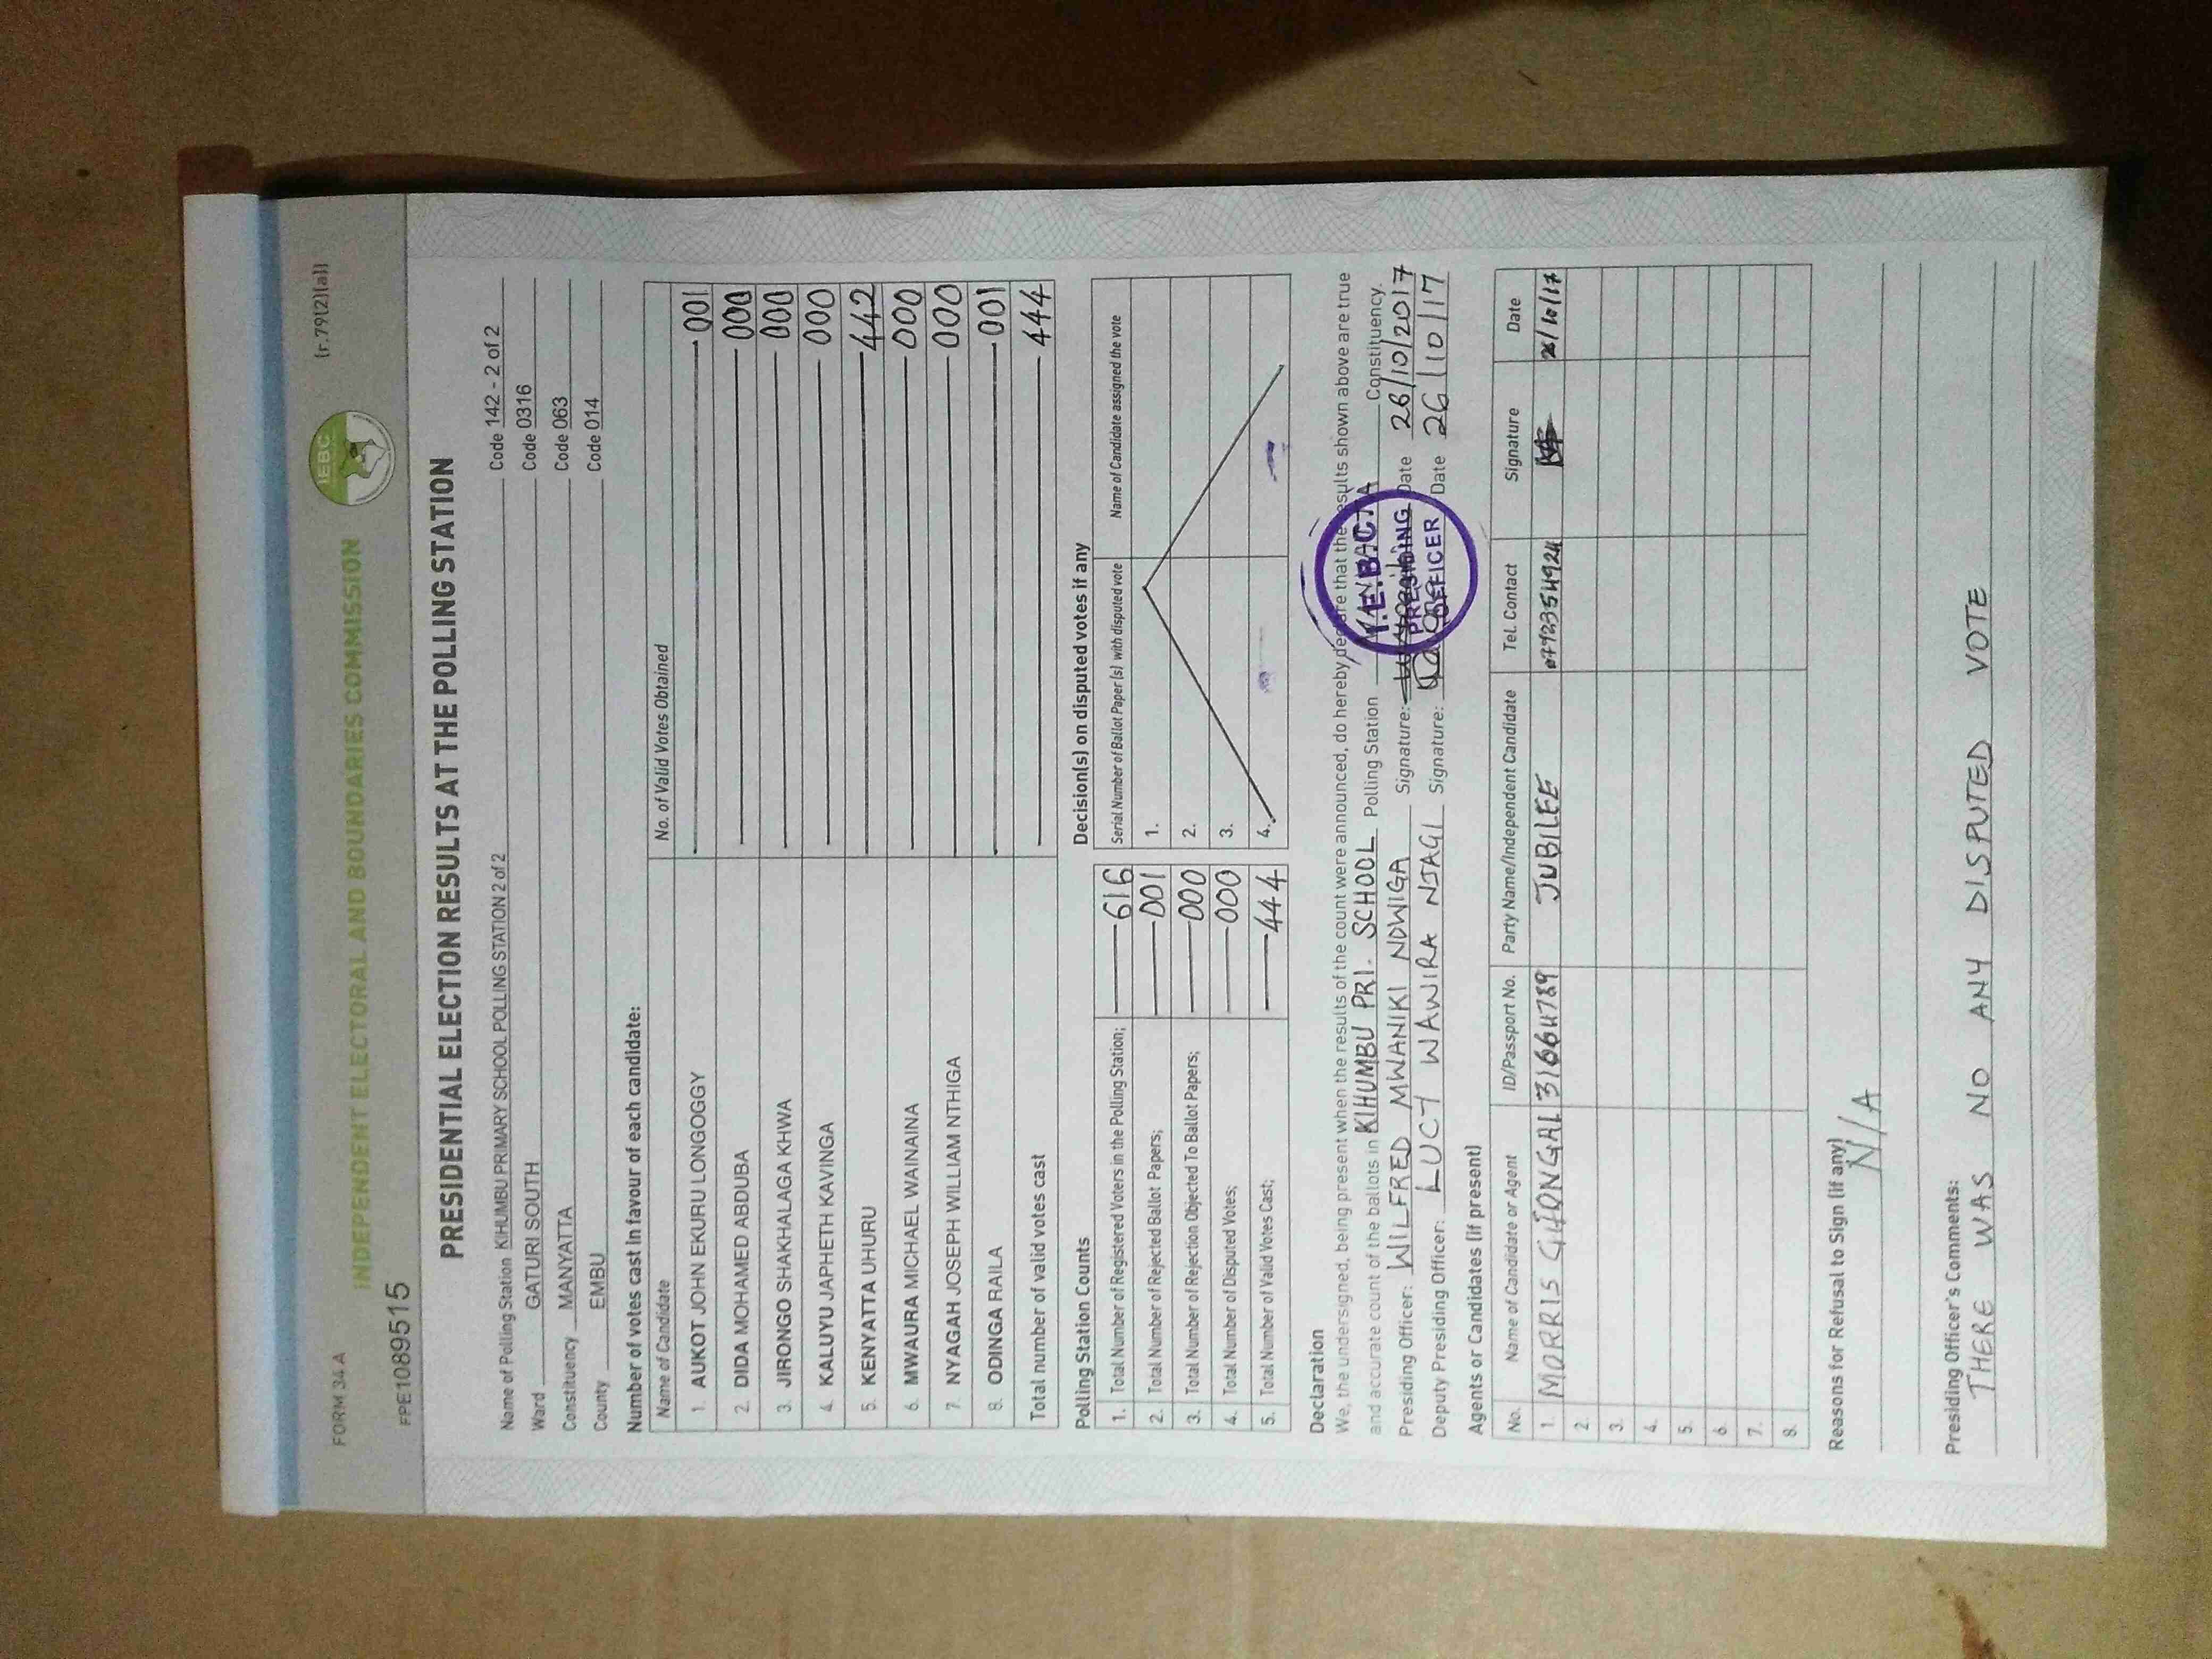 FORM 34 A
(r.79(2)(a))
FPE1089515
INDEPENDENT ELECTORAL AND BOUNDARIES COMMISSION
IEBC
PRESIDENTIAL ELECTION RESULTS AT THE POLLING STATION
Name of Polling Station KIHUMBU PRIMARY SCHOOL POLLING STATION 2 of 2 Code 142 - 2 of 2
Ward GATURI SOUTH Code 0316
Constituency MANYATTA Code 063
County EMBU Code 014
Number of votes cast in favour of each candidate:
Name of Candidate No. of Valid Votes Obtained
1. AUKOT JOHN EKURU LONGOGGY 001
2. DIDA MOHAMED ABDUBA 000
3. JIRONGO SHAKHALAGA KHWA 000
4. KALUYU JAPHETH KAVINGA 000
5. KENYATTA UHURU 442
6. MWAURA MICHAEL WAINAINA 000
7. NYAGAH JOSEPH WILLIAM NTHIGA 000
8. ODINGA RAILA 001
Total number of valid votes cast 444
Polling Station Counts
1. Total Number of Registered Voters in the Polling Station; 616
2. Total Number of Rejected Ballot Papers; 001
3. Total Number of Rejection Objected To Ballot Papers; 000
4. Total Number of Disputed Votes; 000
5. Total Number of Valid Votes Cast; 444
Decision(s) on disputed votes if any
Serial Number of Ballot Paper (s) with disputed vote Name of Candidate assigned the vote
1.
2.
3.
4.
Declaration
We, the undersigned, being present when the results of the count were announced, do hereby declare that the results shown above are true
and accurate count of the ballots in KIHUMBU PRI. SCHOOL Polling Station MANYATTA Constituency.
Presiding Officer: WILFRED MWANIKI NDWIGA Signature: Date 26/10/2017
Deputy Presiding Officer: LUCY WAWIRA NJAGI Signature: Date 26/10/17
I.E.B.C.
PRESIDING
OFFICER
Agents or Candidates (if present)
No. Name of Candidate or Agent ID/Passport No. Party Name/Independent Candidate Tel. Contact Signature Date
1. MORRIS 31664789 JUBILEE 26/10/17
2.
3.
4.
5.
6.
7.
8.
Reasons for Refusal to Sign (if any)
N/A
Presiding Officer's Comments:
THERE WAS NO ANY DISPUTED VOTE